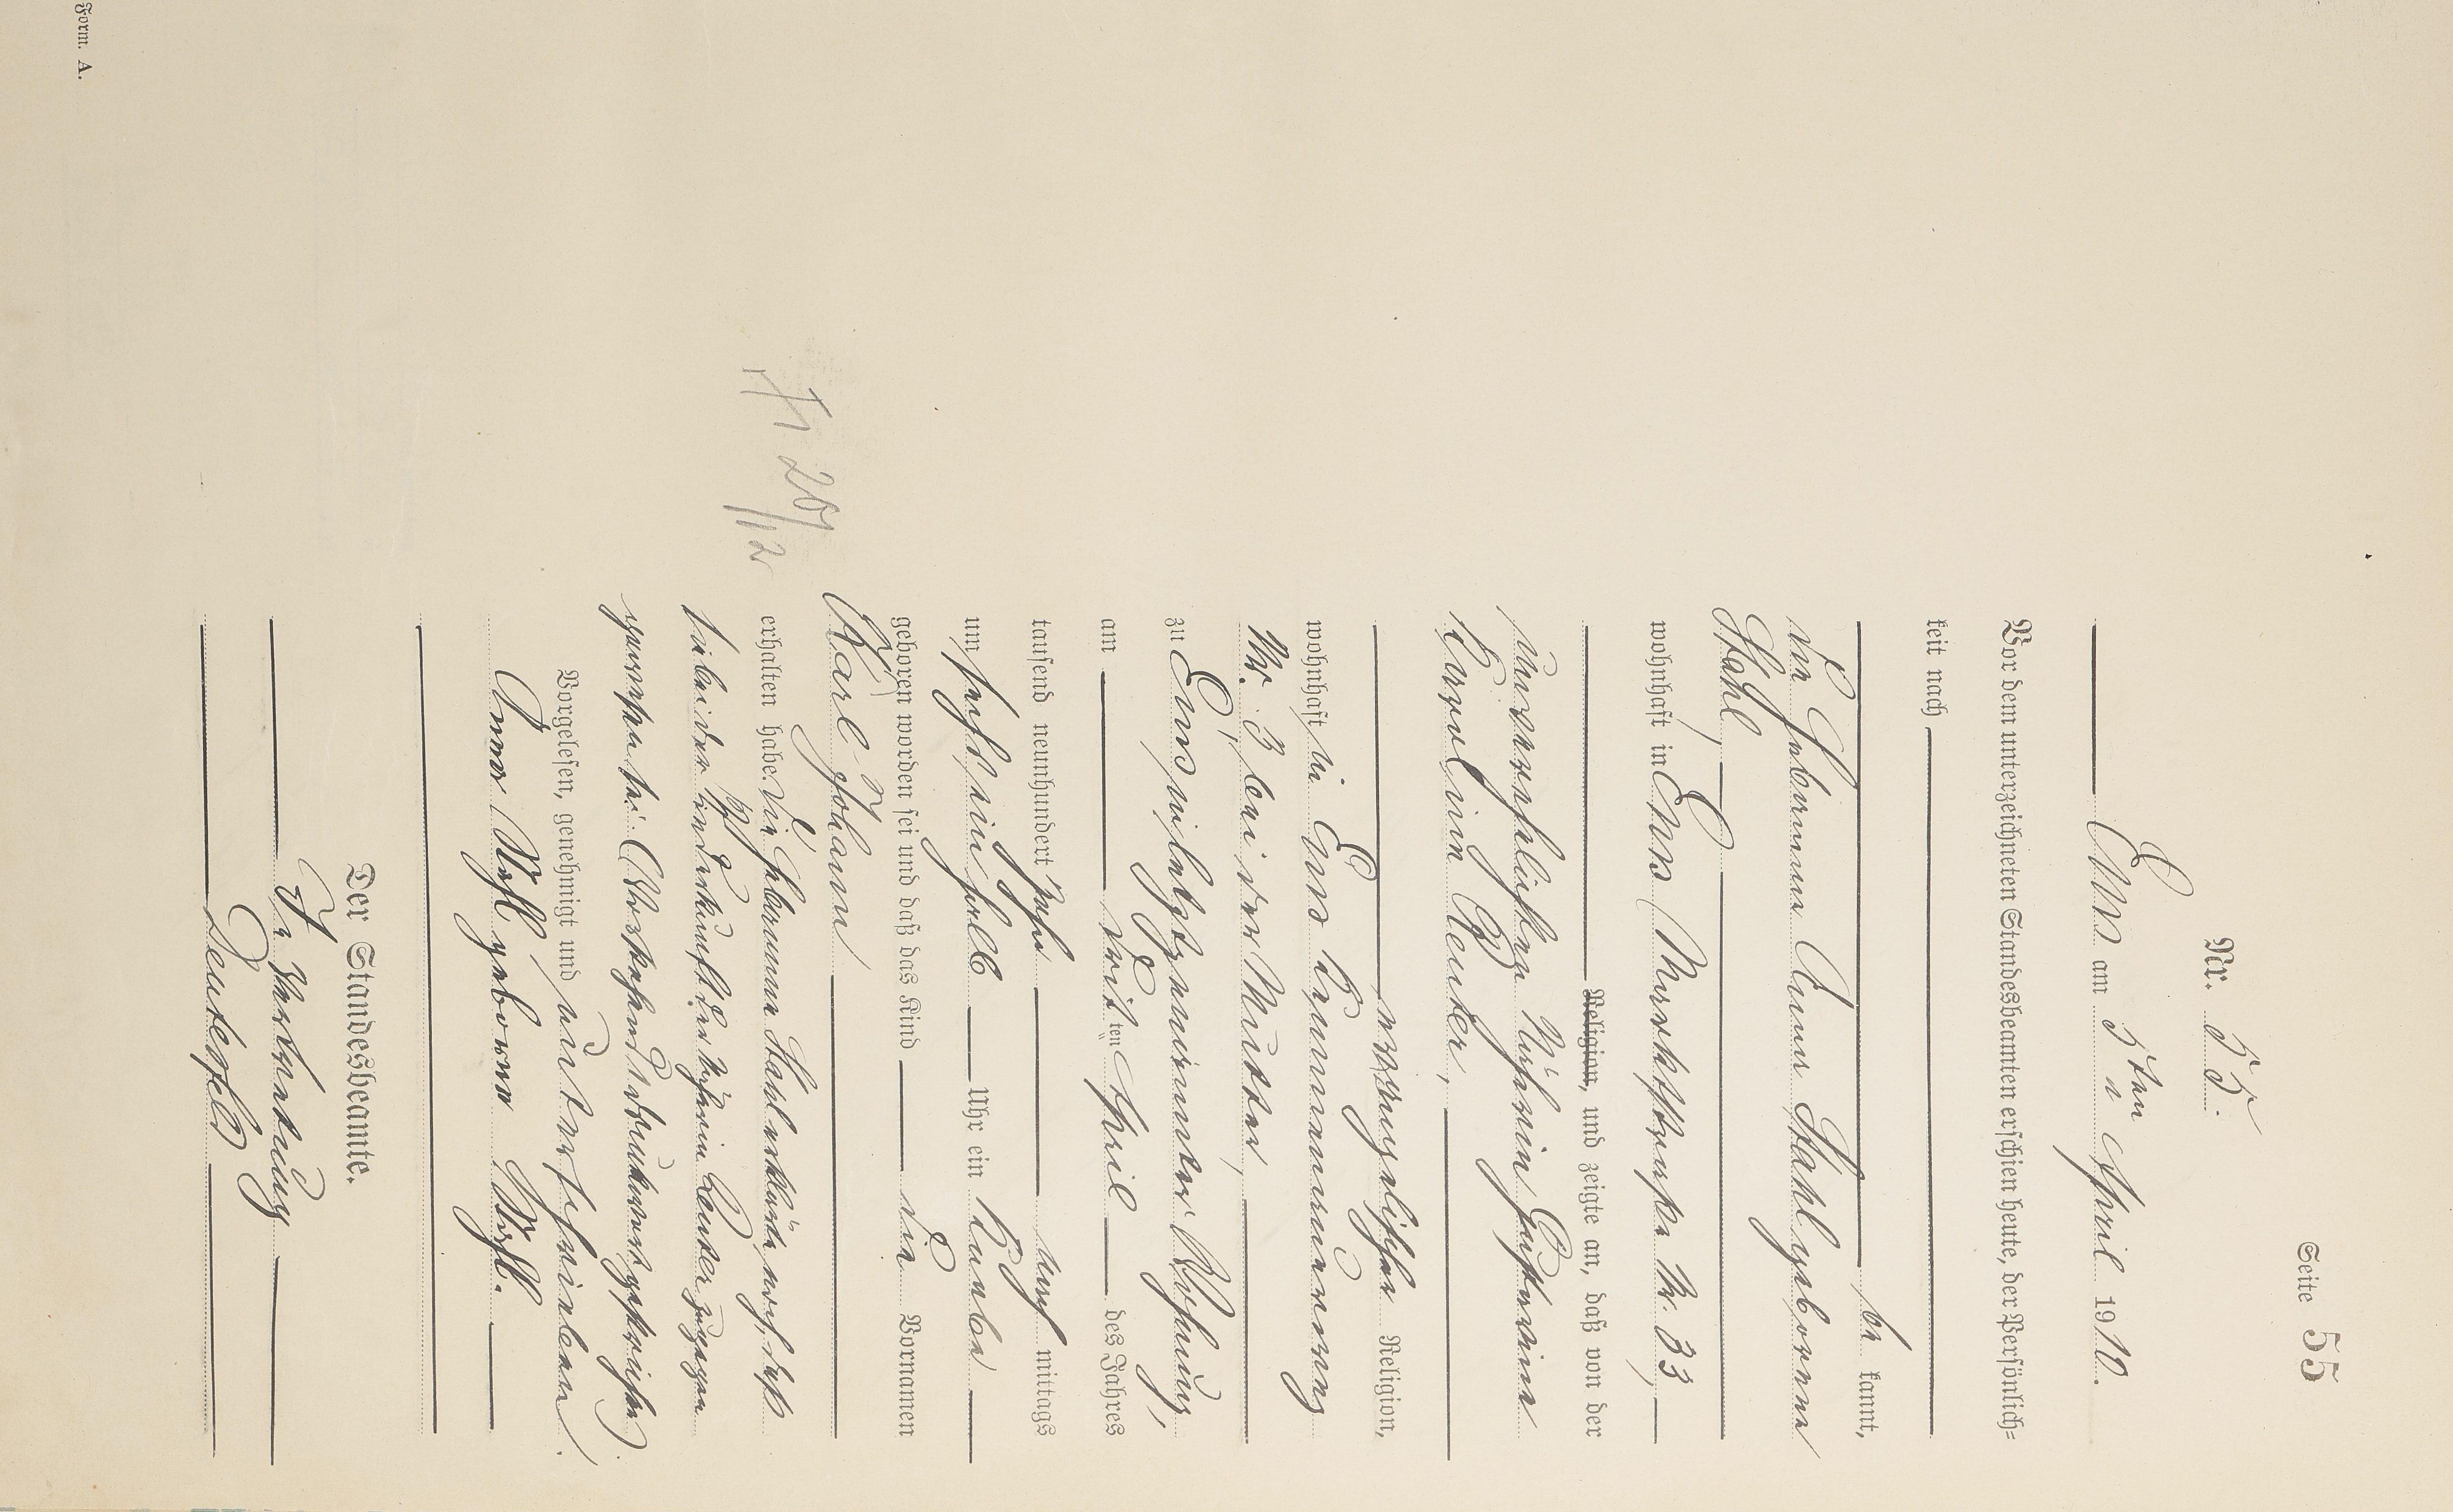 Seite 55
Nr. 55.
Ems am 5ten April 1910.
Vor dem unterzeichneten Standesbeamten erschien heute, der Persönlich=
keit nach
be kannt,
die Hebamme Anna Stahl geborene
Stahl
wohnhaft in Ems Marktstraße Nr. 33,
Religion, und zeigte an, daß von der
unverehelichten Näherin Katharina
Karoline Reuter,
evangelischer Religion,
wohnhaft in Ems
Nr. 3, bei der Mutter,
zu Ems, in bezeichneter Wohnung,
am dritten April des Jahres
tausend neunhundert zehn nach mittags
um sechs ein halb Uhr ein Knabe
geboren worden sei und daß das Kind die Vornamen
Karl Johann
erhalten habe. Die Hebamme Stahl erklärte noch, daß
sie bei der Niederkunft der Näherin Reuter zugegen
gewesen sei. Vorstehend Druckworte gestrichen.
Vorgelesen, genehmigt und unterschrieben.
Anna Stahl geborene Stahl.
Der Standesbeamte.
In Vertretung
Form. A.